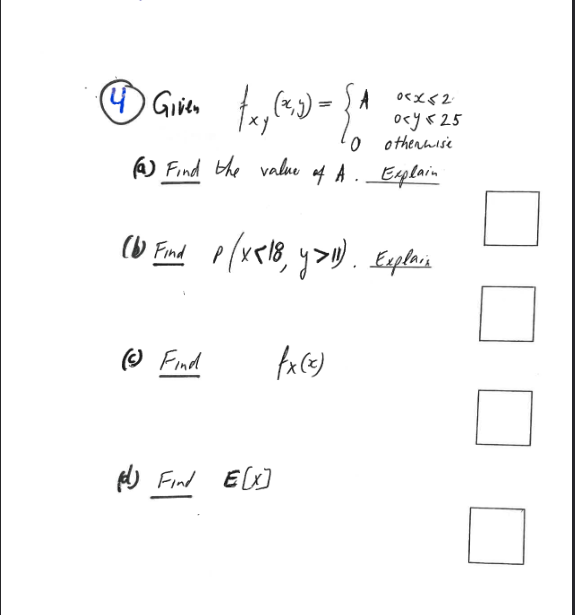 4 Given f_xy(x,y) = { A 0<x≤2
0<y≤25
0 otherwise
(a) Find the value of A. Explain
(b) Find P(x<18, y>11). Explain
(c) Find f_x(x)
(d) Find E[X]